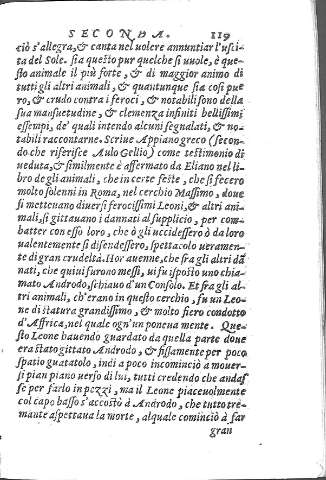 SECONDA. 119
ciò s'allegra, & canta nel uolere annuntiar l'usci
ta del Sole. sia questo pur quel che si uuole, è que-
sto animale il più forte, & di maggior animo di
tutti gli altri animali, & quantunque sia così fue
ro, & crudo contra i feroci, & notabili sono della
sua mansuetudine, & clemenza infiniti bellissimi
essempi, de' quali intendo alcuni segnalati, & no-
tabili raccontarne. Scriue Appiano greco (secon-
do che riferisce Aulo Gellio) come testimonio di
ueduta, & similmente è affermato da Eliano nel li
bro degli animali, che in certe feste, che si fecero
molto solenni in Roma, nel cerchio Massimo, doue
si metteuano diuersi ferocissimi Leoni, & altri ani-
mali, si gittauano i dannati al supplicio, per com-
batter con esso loro, che ò gli uccidessero ò da loro
ualentemente si difendessero, spettacolo ueramen-
te di gran crudeltà. Hor auenne, che fra gli altri dā
nati, che quiui furono messi, ui fu isposto uno chia-
mato Androdo, schiauo d'un Consolo. Et fra gli al-
tri animali, ch'erano in questo cerchio, fu un Leo-
ne di statura grandissimo, & molto fiero condotto
d'Affrica, nel quale ogn'un poneua mente. Que-
sto Leone hauendo guardato da quella parte doue
era stato gittato Androdo, & fissamente per poco
spatio guatatolo, indi a poco incominciò a mouer-
si pian piano uerso di lui, tutti credendo che andas
se per farlo in pezzi, ma il Leone piaceuolmente
col capo basso s'accostò à Androdo, che tutto tre-
mante aspettaua la morte, al quale cominciò à far
gran